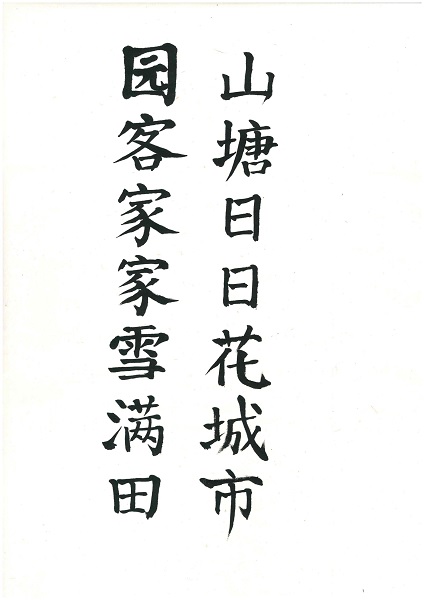 山塘日日花城市
园客家家雪满田